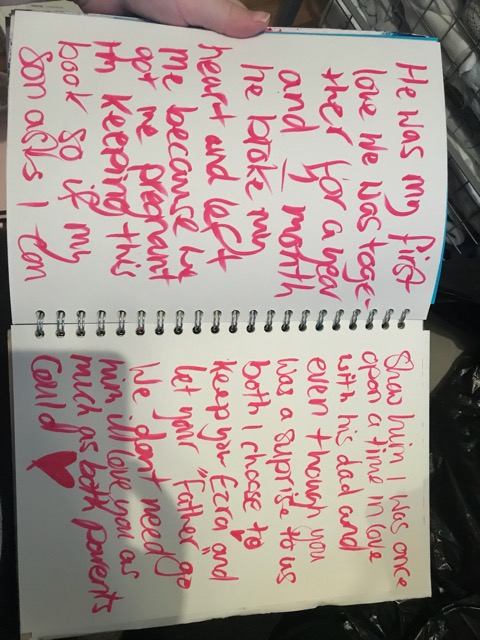 He was my first
love we was toge-
ther for a year
and 1 month
he broke my
heart and left
me because he
got me pregnant
I'm keeping this
book so if my
son asks I can
Show him I was once
opon a time in love
with his dad and
even though you
was a suprise to us
both I choose to
keep you Ezra and
let your "Father" go
We don't need
him ill love you as
much as both parents
Could